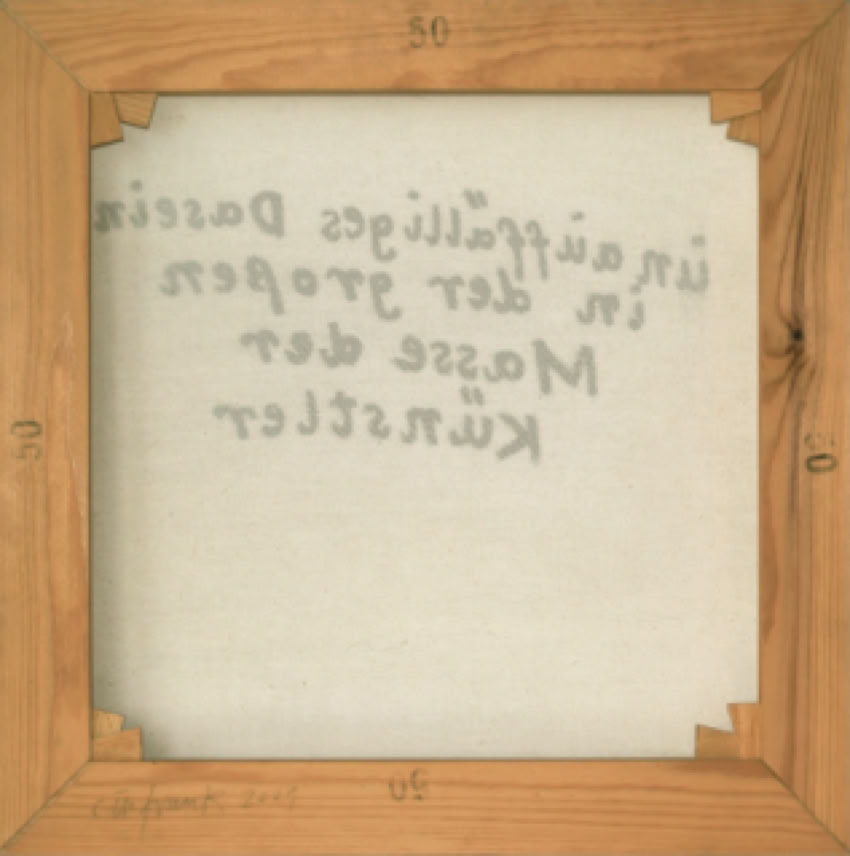 50
ünaüffälliges Dasein
in der großen
Masse der
Künstler
50
50
50
2009